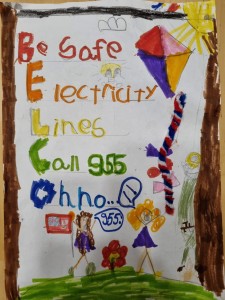 Be Safe
Electricity
Lines
Call 955
Oh no..
955